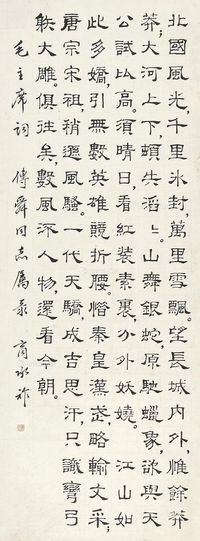 北國風光,千里冰封,萬里雪飄。望長城内外,惟餘莽
莽;大河上下,頓失滔〻。山舞銀蛇,原馳蠟象,欲與天
公試比高。須晴日,看紅裝素裹,分外妖嬈。 江山如
此多嬌,引無數英雄競折腰。惜秦皇漢武,略輸文采;
唐宗宋祖,稍遜風騷。一代天驕,成吉思汗,只識彎弓
射大雕。俱往矣,數風流人物,還看今朝。
毛主席詞 傅舜同志屬录 商承祚